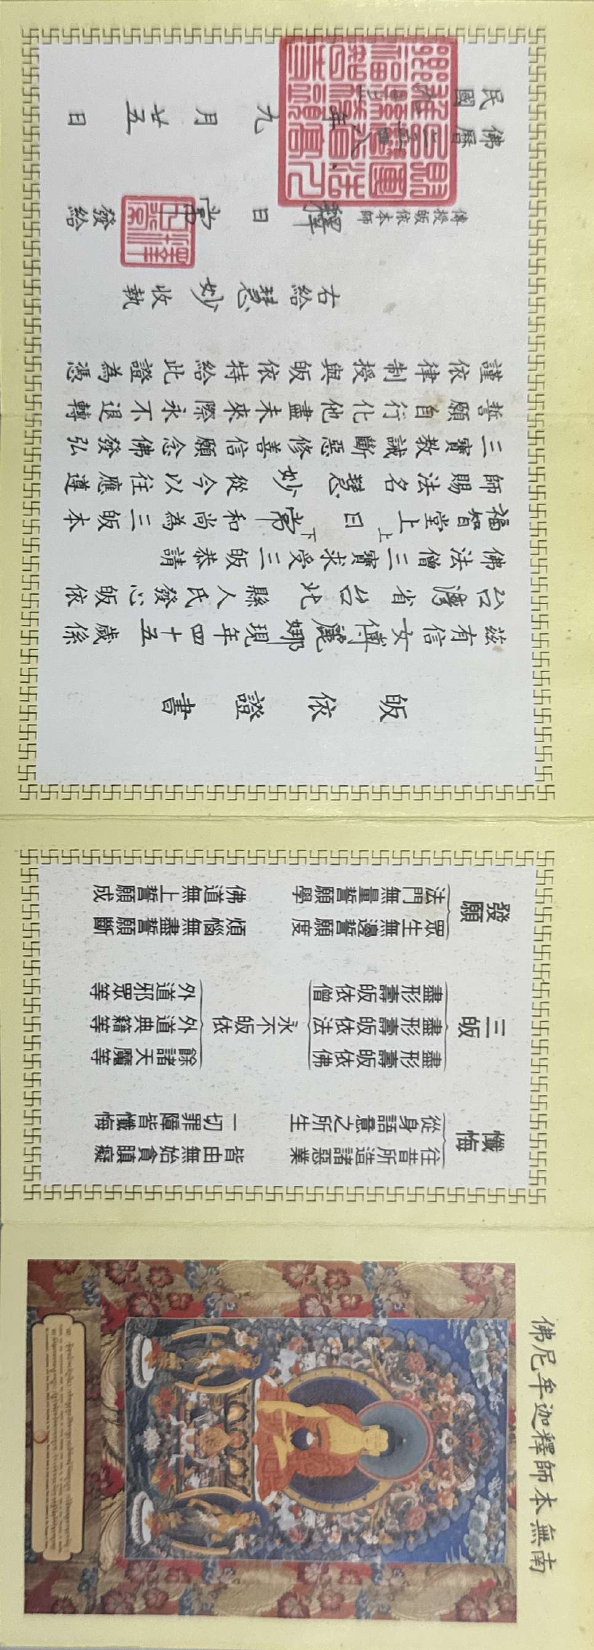 南無本師釋迦牟尼佛
懺悔
往昔所造諸惡業 皆由無始貪瞋癡
從身語意之所生 一切罪障皆懺悔
三皈
盡形壽皈依佛
盡形壽皈依法
盡形壽皈依僧
永不皈依
餘諸天魔等
外道典籍等
外道邪眾等
發願
眾生無邊誓願度 煩惱無盡誓願斷
法門無量誓願學 佛道無上誓願成
皈依證書
茲有信女傅麗娜現年四十五歲係
台灣省台北縣人氏發心皈依
佛法僧三寶求受三皈恭請
福智堂上上日下常和尚為三皈本
師賜法名慧妙從今以往應遵
三寶教誡斷惡修善信願念佛發弘
誓願自行化他盡未來際永不退轉
謹依律制授與皈依特給此證為憑
右給慧妙收執
傳授皈依本師釋日常發給
佛曆
民國 年九月廿五日